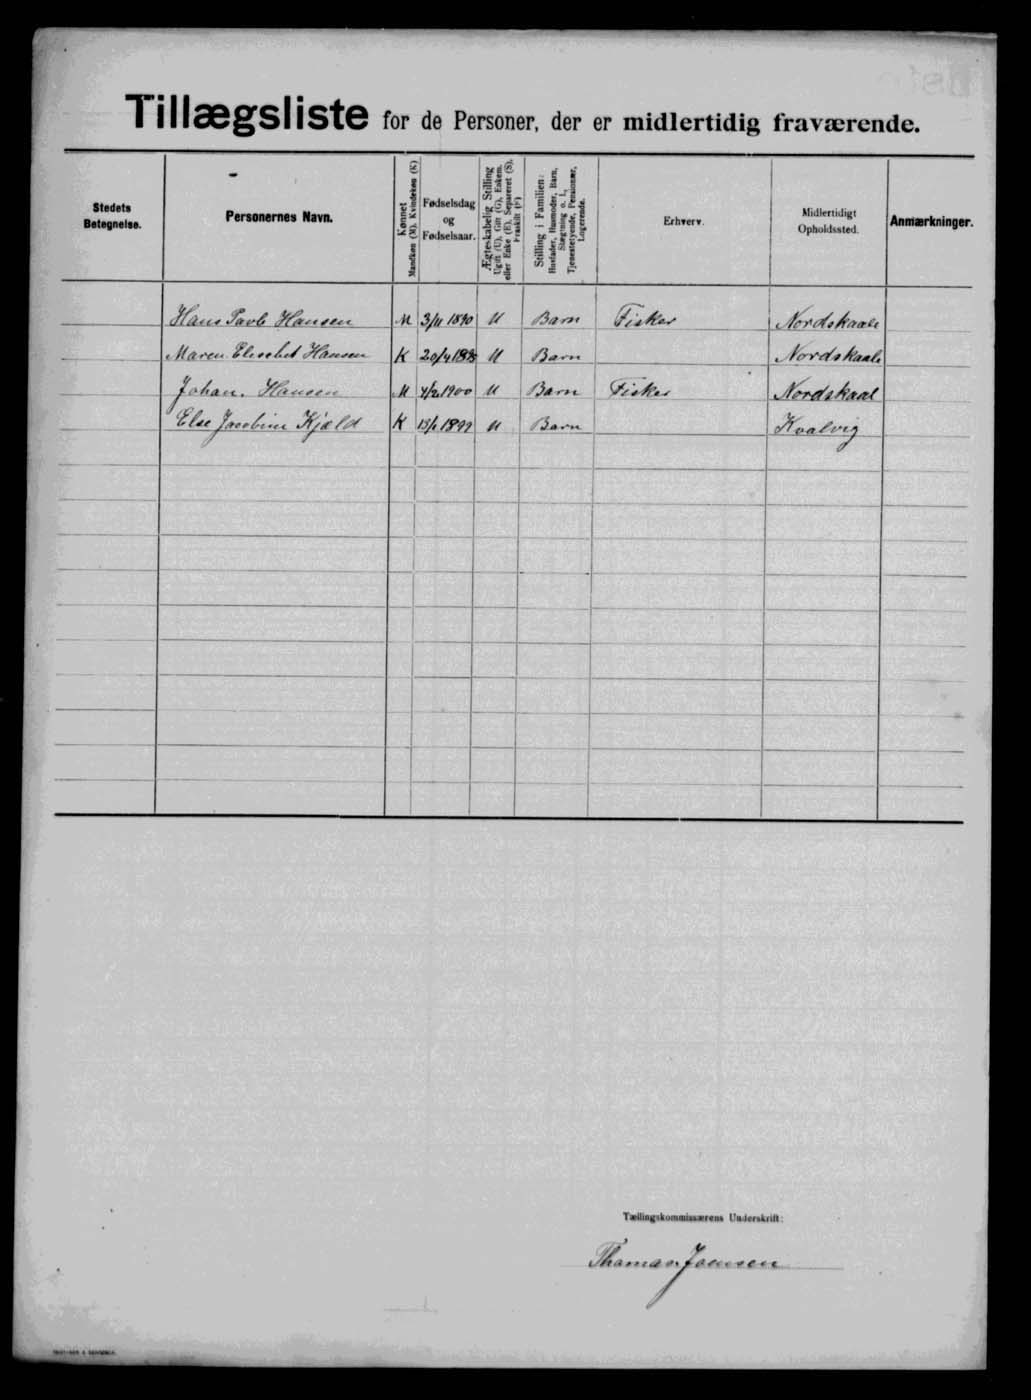 Tillægsliste for de Personer, der er midlertidig fraværende.
Stedets Betegnelse.
Personernes Navn.
Kønnet Mandkøn (M). Kvindekøn (K)
Fødselsdag og Fødselsaar.
Ægteskabelig Stilling Ugift (U), Gift (G), Enkem. eller Enke (E), Separeret (S), Fraskilt (F)
Stilling i Familien: Husfader, Husmoder, Barn, Slægtning o. l., Tjenestetyende, Pensionær, Logerende.
Erhverv.
Midlertidigt Opholdssted.
Anmærkninger.
Hans Pavb Hansen M 3/11 1890 U Barn Fisker Nordskaale
Maren Elisebet Hansen K 20/4 1898 U Barn Nordskaale
Johan. Hansen M 4/2 1900 U Barn Fisker Nordskaal
Else Jacobine Kjæld K 13/1 1899 U Barn Kvalvig
Tællingskommissærens Underskrift:
Thomas. Joensen